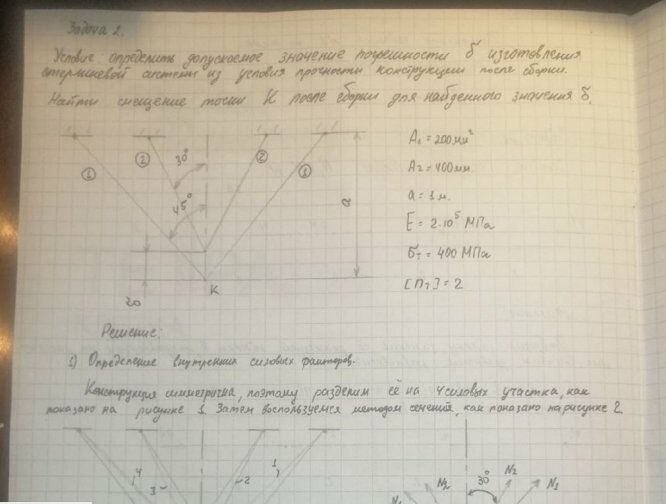 Задача 2.
Условие: определить допускаемое значение погрешности δ изготовления
стержневой системы из условия прочности конструкции после сборки.
Найти смещение точки К после сборки для найденного значения δ.
1 2 30° 2 1
45°
a
К
A₁ = 200 мм²
A₂ = 400 мм
a = 1 м.
E = 2·10⁵ МПа
σт = 400 МПа
[nт] = 2
Решение:
1) Определение внутренних силовых факторов.
Конструкция симметрична, поэтому разделим её на 4 силовых участка, как
показано на рисунке 1. Затем воспользуемся методом сечений, как показано на рисунке 2.
4 3 2 1
N₂ 30° N₂ N₁
N₁